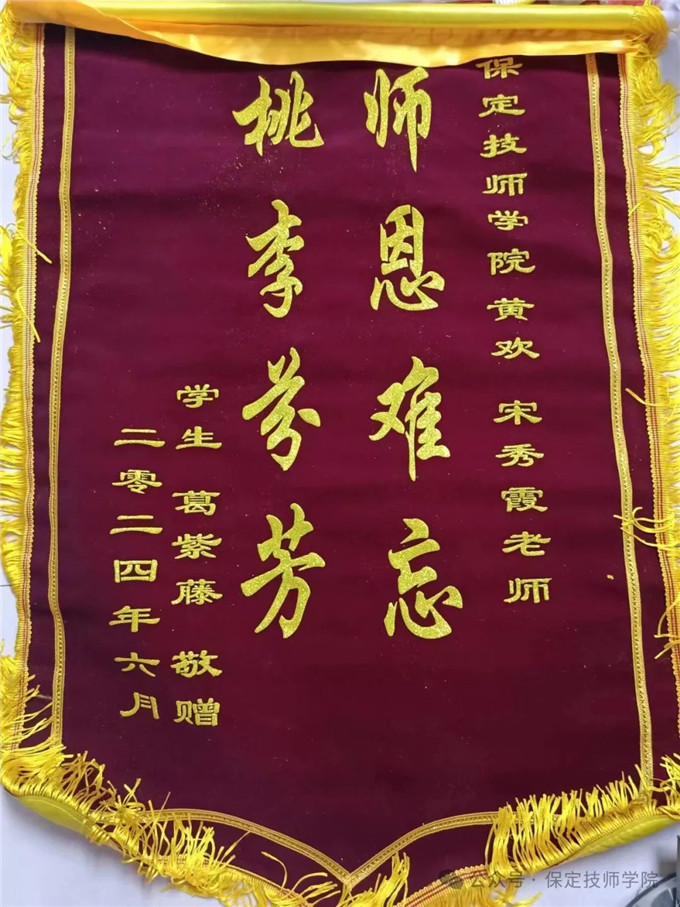 保定技师学院黄欢 宋秀霞老师
师恩难忘
桃李芬芳
学生 葛紫藤 敬赠
二零二四年六月
公众号·保定技师学院